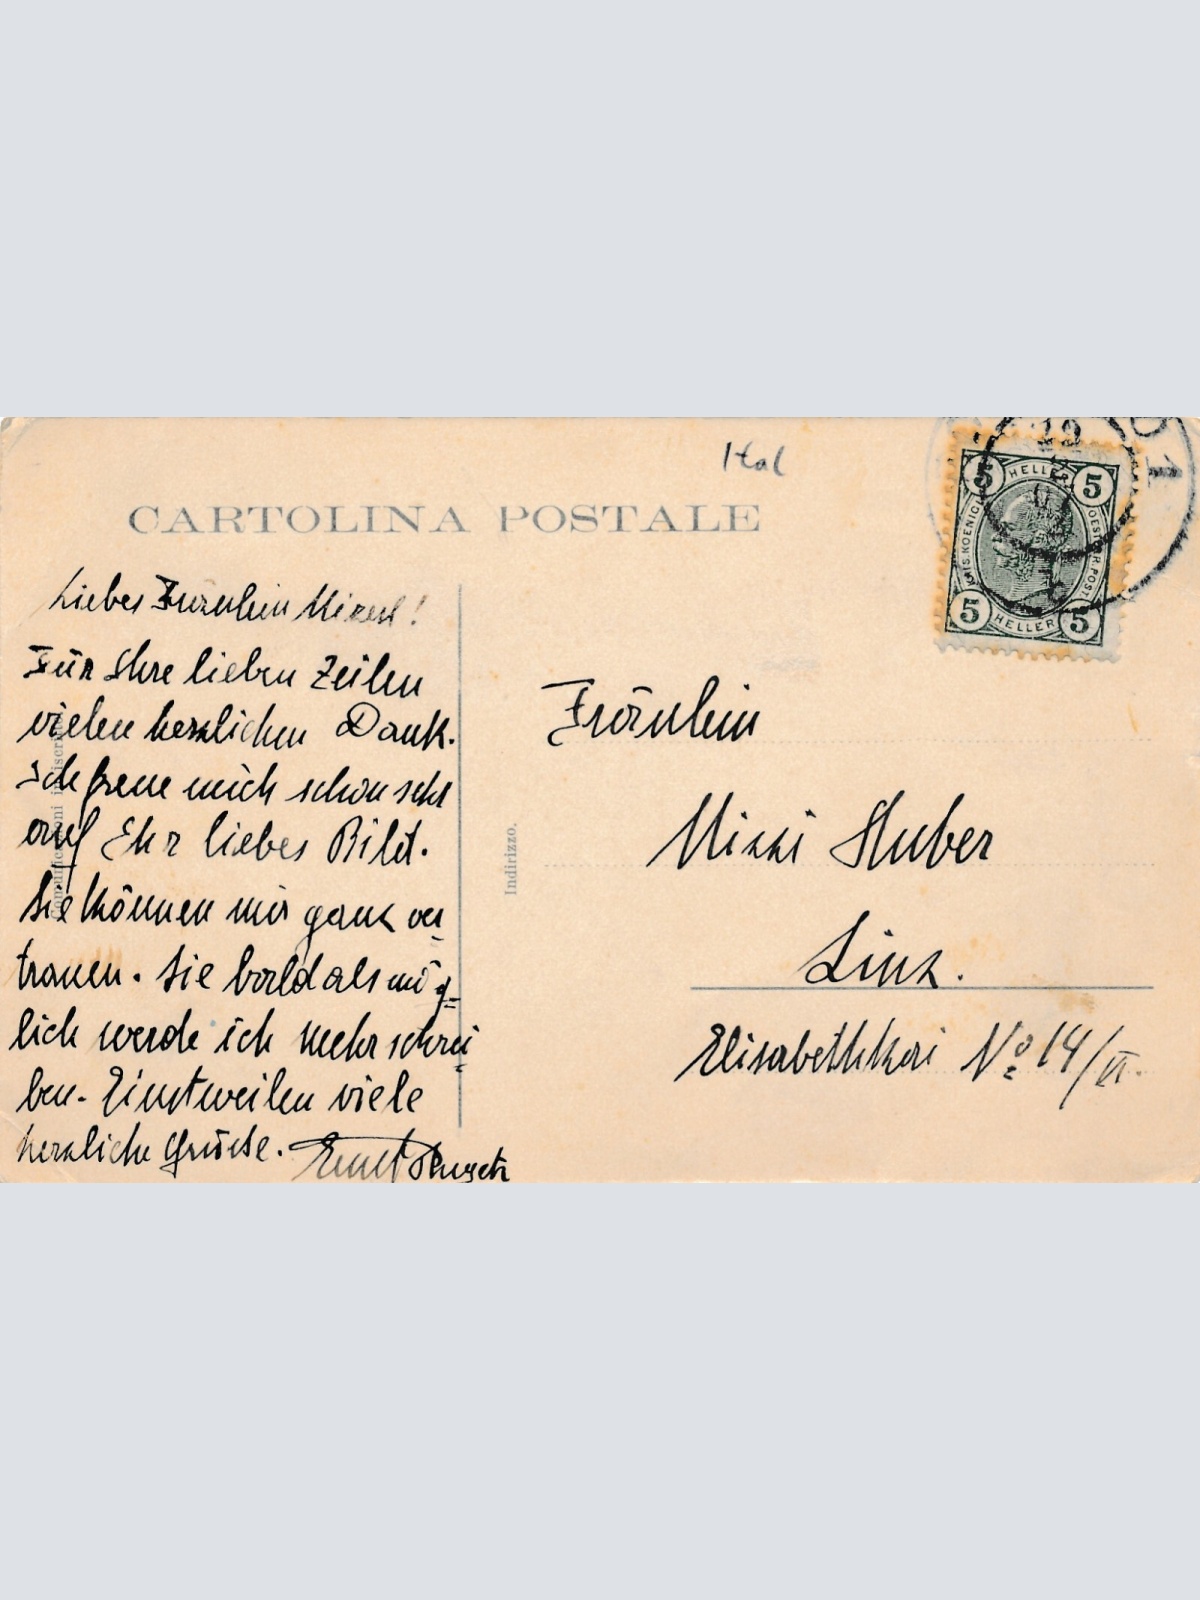 Ital
CARTOLINA POSTALE
Liebes Fräulein Mizzerl!
Für Ihre lieben Zeilen
vielen herzlichen Dank.
Ich freue mich schon sehr
auf Ihr liebes Bild.
Sie können mir ganz ver
trauen. Sie bald als mög=
lich werde ich mehr schrei
ben. Einstweilen viele
herzliche Grüsse. Ernst
Indirizzo.
Fräulein
Mizzi Huber
Linz.
Elisabethkai No 14/II.
5 HELLER 5
KAIS. KOENIGL. OESTERR. POST
5 HELLER 5
1